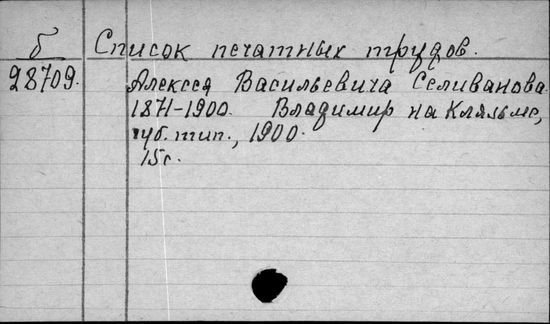 б
28709.
Список печатных трудов.
Алексея Васильевича Селиванова
1871-1900. Владимир на Клязьме,
губ. тип., 1900.
15 с.